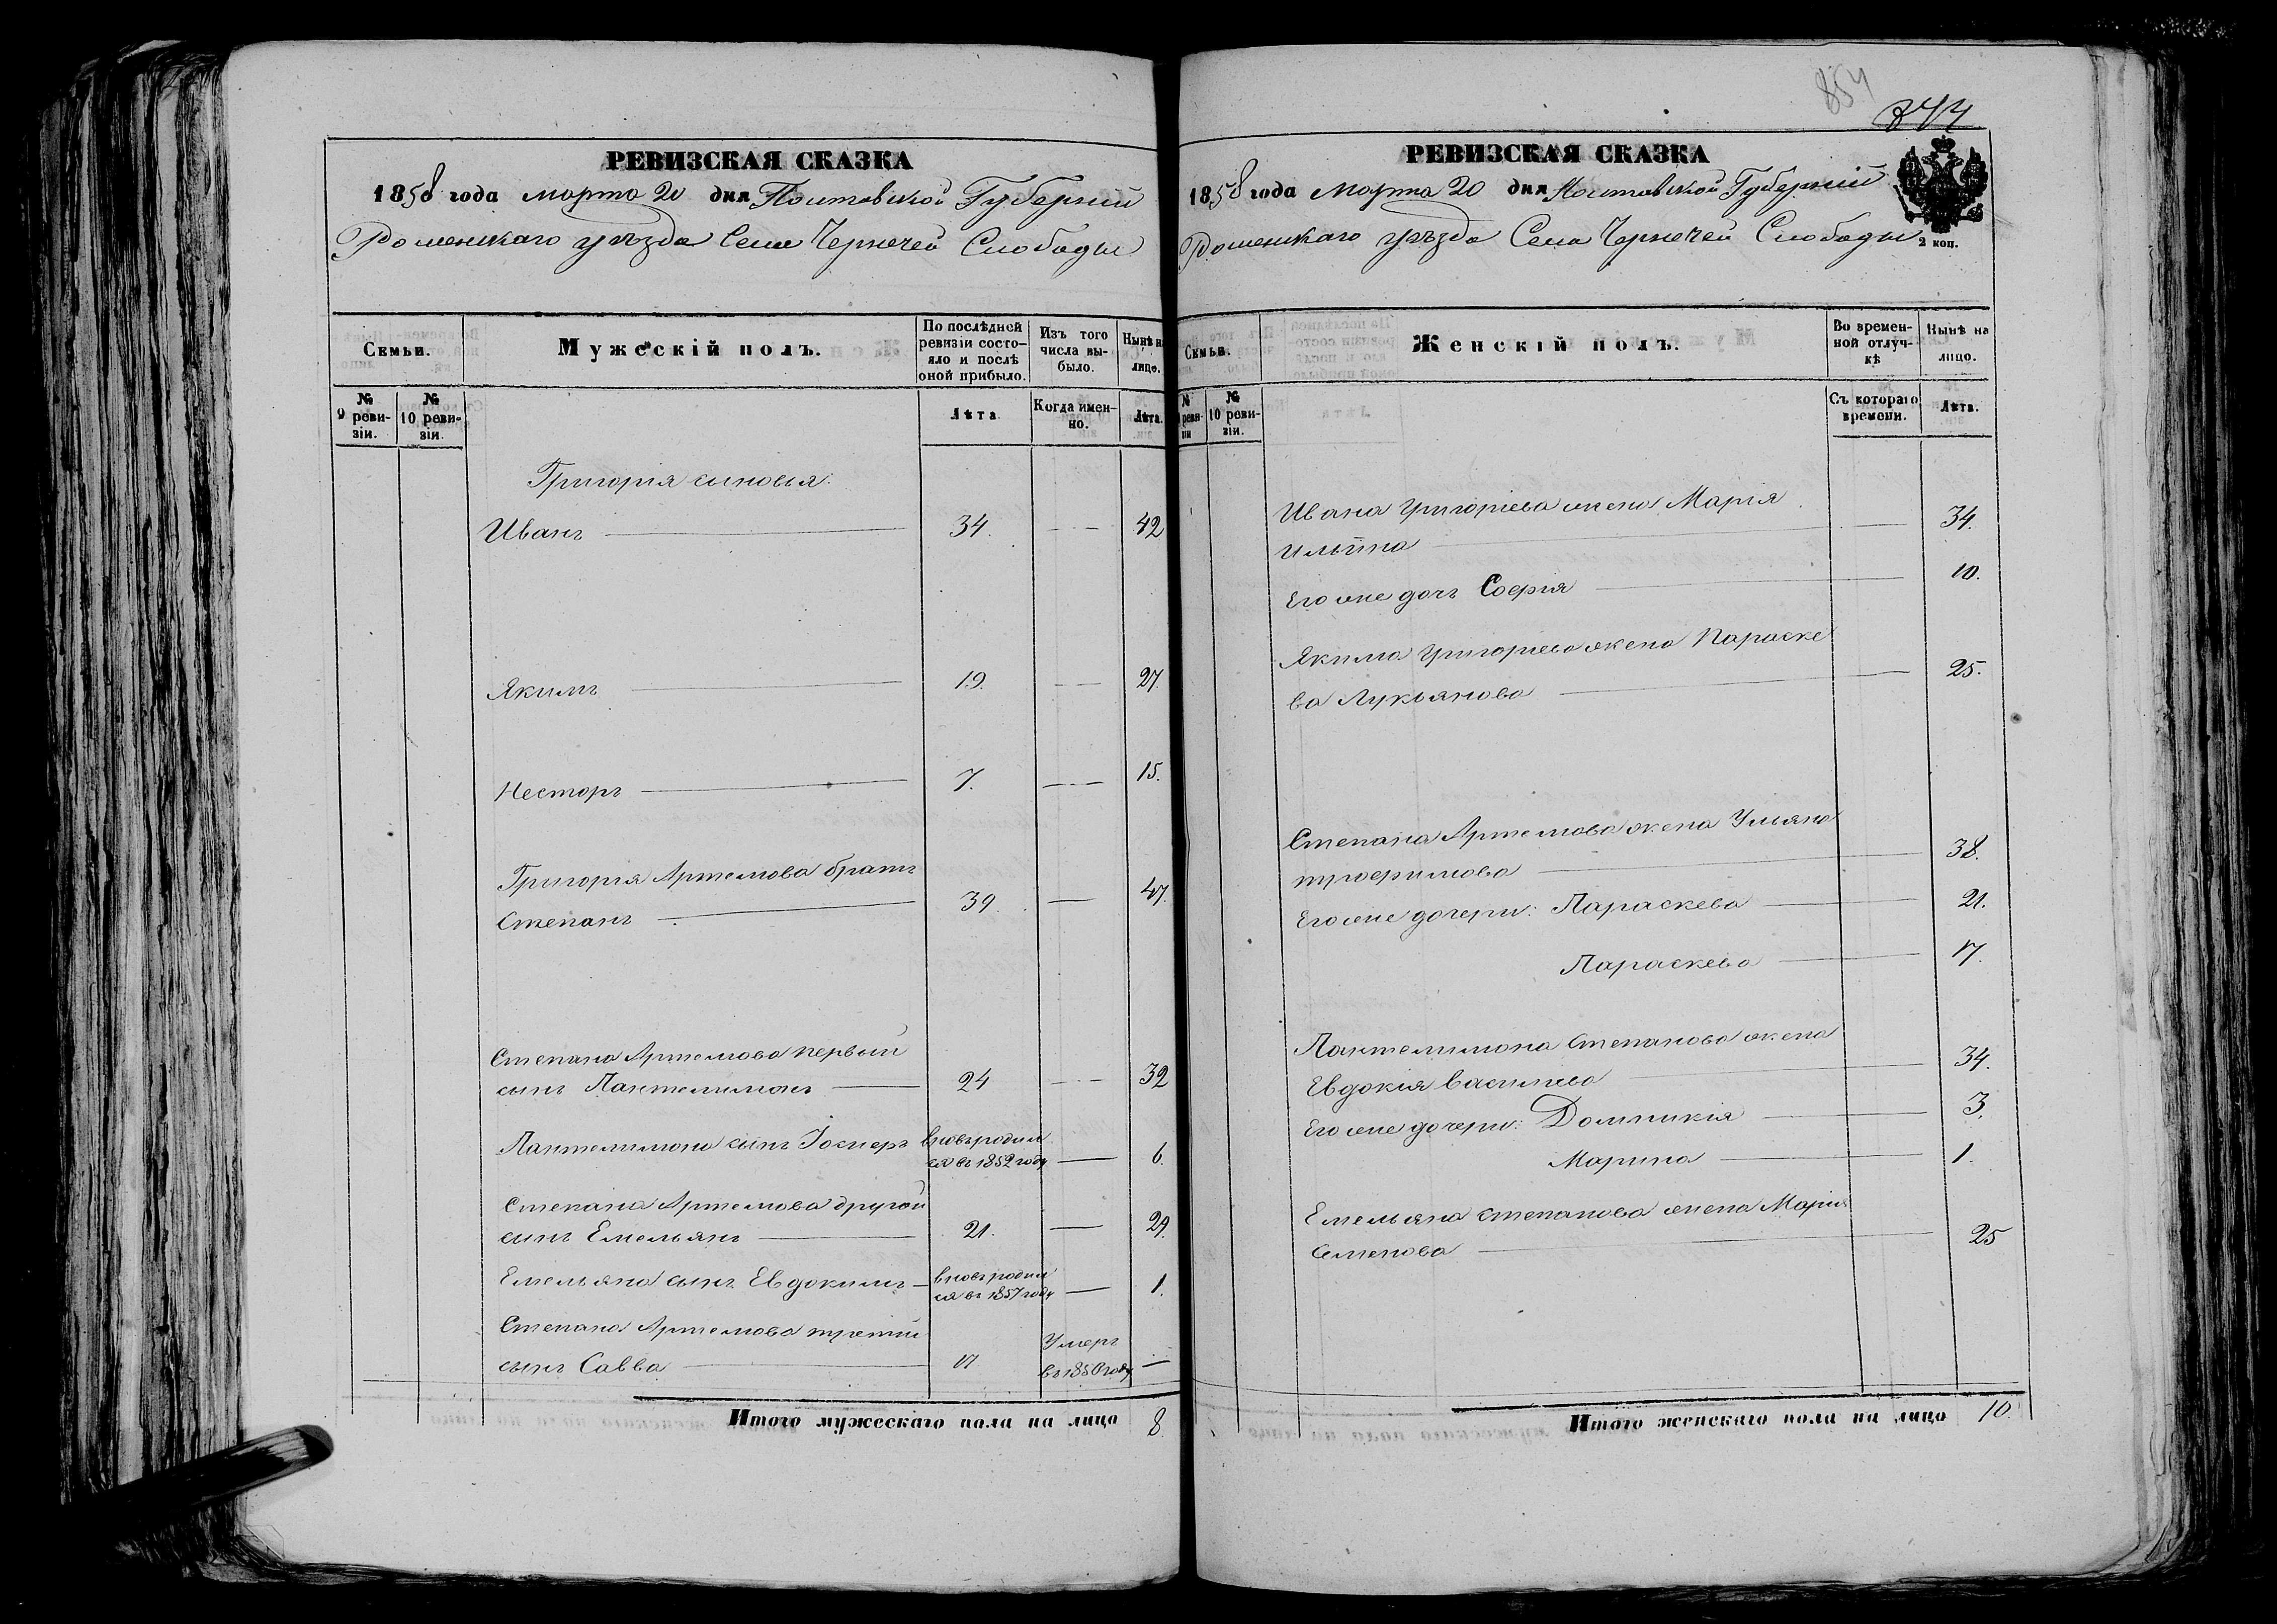 РЕВИЗСКАЯ СКАЗКА
1858 года марта 20 дня Полтавской Губерніи
Роменскаго уѣзда Села Чернечей Слободы
Семьи.
Мужескій полъ.
По послѣдней ревизіи состояло и послѣ оной прибыло.
Изъ того числа выбыло.
Нынѣ на лицо.
№ 9 ревизіи.
№ 10 ревизіи.
Лѣта
Когда именно.
Лѣта.
Григорія сыновья:
Иванъ 34. 42
Якимъ 19. 27.
Несторъ 7. 15.
Григорія Артемова братъ
Степанъ 39. 47.
Степана Артемова первый
сынъ Пантелимонъ 24 32
Пантелимона сынъ вновь родил
ся въ 1852 году 6.
Степана Артемова другой
сынъ Емельянъ 21. 29.
Емельяна сынъ Евдокимъ вновь родил
ся въ 1857 году 1.
Степана Артемова третій
сынъ Савва 17 Умеръ
въ 1850 году
Итого мужескаго пола на лицо 8.
854
РЕВИЗСКАЯ СКАЗКА
1858 года марта 20 дня Полтавской Губерніи
Роменскаго уѣзда Села Чернечей Слободы
2 коп.
Семьи.
Женскій полъ.
Во временной отлучкѣ
Нынѣ на лицо.
№ 9 ревизіи
№ 10 ревизіи.
Съ котораго времени.
Лѣта.
Ивана Григоріева жена Марія
Ильина 34.
Его же дочь Софія 10.
Якима Григоріева жена Параске
ва Лукьянова 25.
Степана Артемова жена Ульяна
трофимова 38.
Его же дочери: Параскева 21.
Параскева 17.
Пантелимона Степанова жена
Евдокія василіева 34.
Его же дочери: Домникія 3.
Марина 1.
Емельяна степанова жена Марія
Семенова 25
Итого женскаго пола на лицо 10.